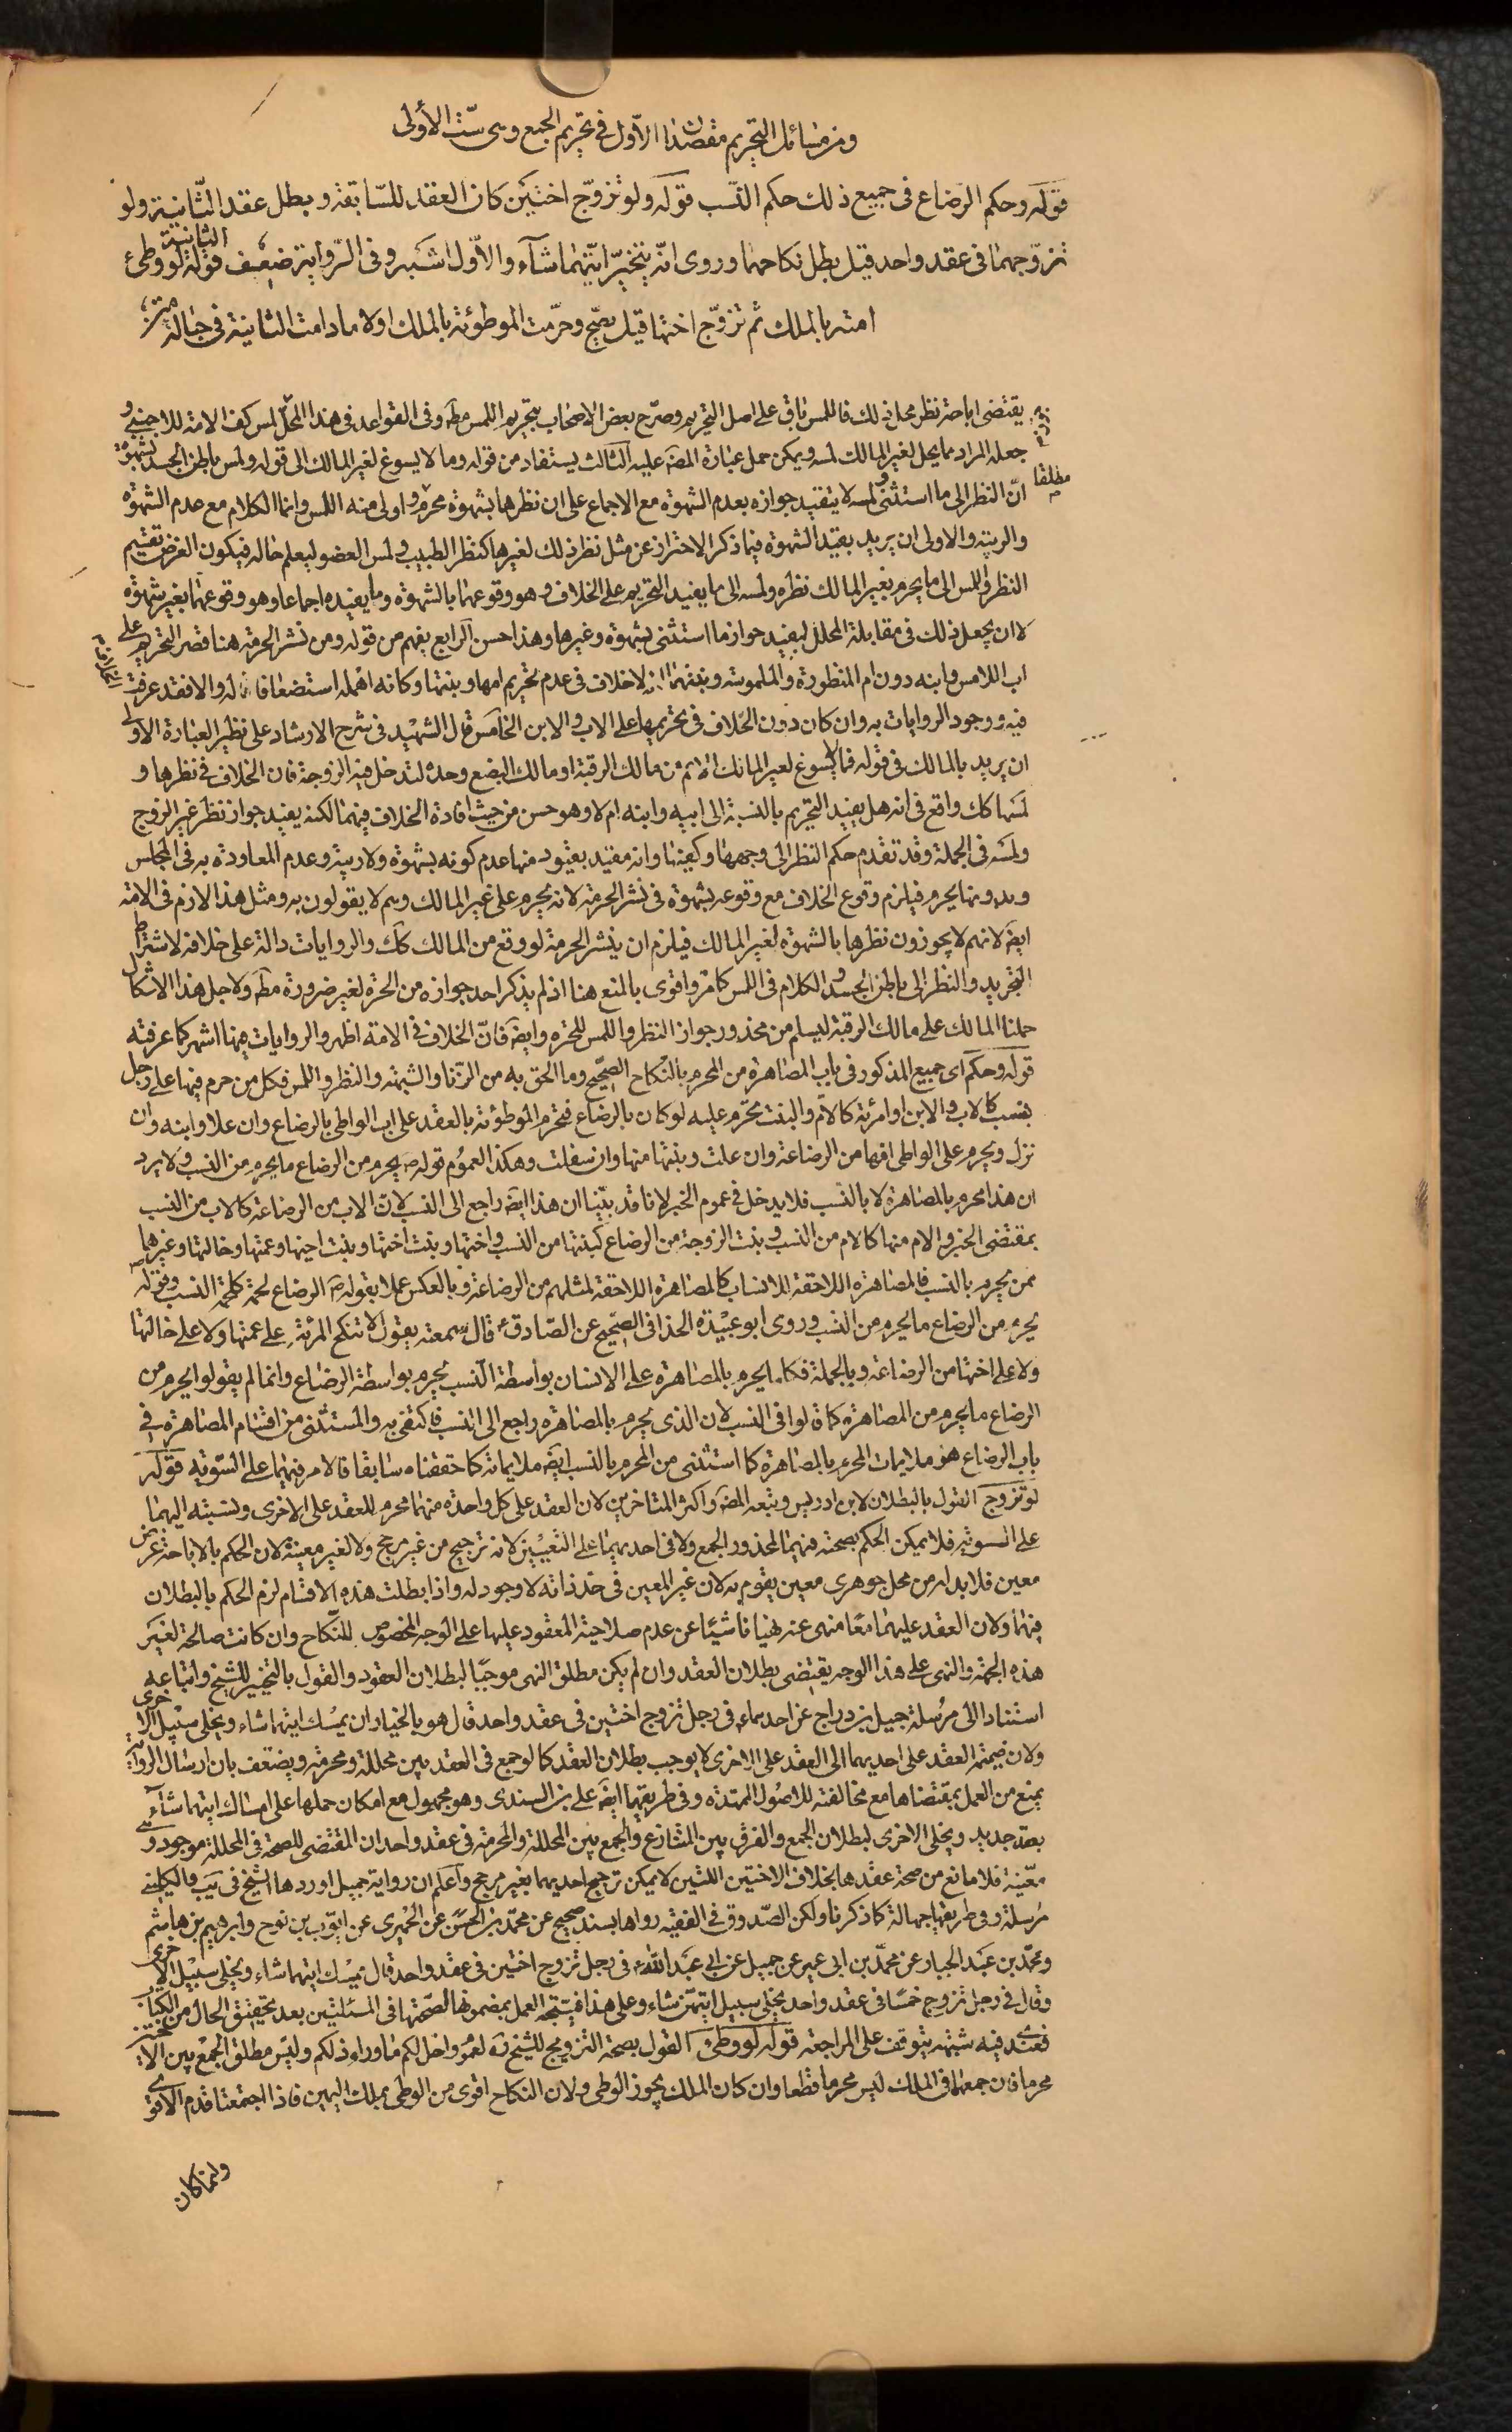 ومن مسائل التحريم مقصدان الأوّل فى تحريم الجمع وهى ستّ الأولى
قوله وحكم الرضاع فى جميع ذلك حكم النّسب قوله ولو تزوّج اختين كان العقد للسّابقة وبطل عقد الثّانية ولو
تزوّجهما فى عقد واحد قيل بطل نكاحهما وروى انّه يتخيّر ايّتهما شآء والأوّل اشبه وفى الرّواية ضعف الثانية قوله لو وطئ
امته بالملك ثم تزوّج اختها قيل يصّح وحرّمت الموطوئة بالملك اولا ما دامت الثانية فى حباله
يقتضى اباحة نظر محل ذلك فاللمس باق على اصل التحريم وصرّح بعض الاصحاب بتحريم اللمس مطَ وفى القواعد فى هذا المحلّ لمس كف الامة للاجنبى و
جعله المراد مما يحل لغير المالك لمسه ويمكن حمل عبارة المصَ عليه الثالث يستفاد من قوله وما لا يسوغ لغير المالك الى قوله ولمس باطن الجسد بشهوة
مطلقا
انّ النظر الى ما استثنى ولمسه لا يتقيد جوازه بعدم الشهوة مع الاجماع على ان نظرها بشهوة محرّم واولى منه اللمس وانما الكلام مع عدم الشهوة
والريبة والاولى ان يريد بقيد الشهوة فيما ذكر الاحتراز عن مثل نظر ذلك لغيرها كنظر الطبيب ولمس العضو ليعلم حاله فيكون الغرض تقسيم
النظر واللمس الى ما يحرم بغير المالك نظره ولمسه الى ما يفيد التحريم على الخلاف وهو وقوعهما بالشهوة وما يفيده اجماعا وهو وقوعهما بغير شهوة
لا ان يجعل ذلك فى مقابلة المحلل ليفيد جواز ما استثنى بشهوة وغيرها وهذا حسن الرابع يفهم من قوله ومن نشر الحرمة هنا قصر التحريم على
اب اللامس وابنه دون ام المنظورة والملموسة وبنتهما انه لا خلاف فى عدم تحريم امها وبنتها وكانه اهمله استضعافا له والا فقد عرفت
فيه ووجود الروايات به وان كان دون الخلاف فى تحريمها على الاب والابن الخامس قال الشهيد فى شرح الارشاد على نظير العبارة الاولى
ان يريد بالمالك فى قوله فما لا يسوغ لغير المالك الاعم من مالك الرقبة او مالك البضع وحده لتدخل فيه الزوجة فان الخلاف فى نظرها و
لمسها كك واقع فى انه هل يفيد التحريم بالنسبة الى ابيه وابنه ام لا وهو حسن من حيث افادة الخلاف فيهما لكنه يفيد جواز نظر غير الزوج
ولمسه فى الجملة وقد تقدم حكم النظر الى وجهها وكفيها وانه مقيد بقيود منها عدم كونه بشهوة ولا ريبة وعدم المعاودة به فى المجلس
وبدونها يحرم فيلزم وقوع الخلاف مع وقوعه بشهوة فى نشر الحرمة لانه يحرم على غير المالك وهم لا يقولون به ومثل هذا لازم فى الامة
ايضَ لانهم لا يجوزون نظرها بالشهوة لغير المالك فيلزم ان ينشر الحرمة لو وقع من المالك كك والروايات دالة على خلافه لاشتراط
التجريد والنظر الى باطن الجسد والكلام فى اللمس كما مرّ واقوى بالمنع هنا اذ لم يذكر احد جوازه من الحرة لغير ضرورة مطَ ولاجل هذا الاشكال
حملنا المالك على مالك الرقبة ليسلم من محذور جواز النظر واللمس للحرة وايضَ فانّ الخلاف فى الامة اظهر والروايات فيها اشهر كما عرفته
قوله وحكم اى جميع المذكور فى باب المصاهرة من المحرم بالنكاح الصحّيح وما الحق به من الزّنا والشبهة والنظر واللمس فكل من حرم فيها على رجل
بنسب كالاب والابن او امرئة كالام والبنت محرّم عليه لو كان بالرضاع فتحرم الموطوئة بالعقد على اب الواطى بالرضاع وان علا وابنه وان
نزل ويحرم على الواطى امها من الرضاعة وان علت وبنتها منها وان سفلت وهكذا لعموم قوله صَ يحرم من الرضاع ما يحرم من النسب ولا يرد
ان هذا محرم بالمصاهرة لا بالنسب فلا يدخل فى عموم الخبر لانا قد بيّنا ان هذا ايضَ راجع الى النسب لان الاب من الرضاعة كالاب من النسب
بمقتضى الخبر والام منها كالام من النسب وبنت الزوجة من الرضاع كبنتها من النسب واختها وبنت اختها وبنت اخيها وعمتها وخالتها وغيرها
ممن يحرم بالنسب فالمصاهرة اللاحقة للانساب كالمصاهرة اللاحقة لمثلهم من الرضاعة وبالعكس عملا بقوله صَ الرضاع لحمة كلحمة النسب وقوله
يحرم من الرضاع ما يحرم من النسب وروى ابو عبيدة الحذا فى الصحّيح عن الصّادق ع قال سمعته يقول لا تنكح المرئة على عمتها ولا على خالتها
ولا على اختها من الرضاعة وبالجملة فكلما يحرم بالمصاهرة على الانسان بواسطة النسب يحرم بواسطة الرضاع وانما لم يقولوا يحرم من
الرضاع ما يحرم من المصاهرة كما قالوا فى النسب لان الذى يحرم بالمصاهرة راجع الى النسب فاكتفى به والمستثنى من اقسام المصاهرة فى
باب الرضاع هو ملايمات المحرم بالمصاهرة كما استثنى من المحرم بالنسب ايضَ ملايماته كما حققناه سابقا فالامر فيهما على السّوية قوله
لو تزوج القول بالبطلان لابن ادريس وتبعه المصَ واكثر المتاخرين لان العقد على كل واحدة منهما محرم للعقد على الاخرى ونسبته اليهما
على السوية فلا يمكن الحكم بصحته فيهما لمحذور الجمع ولا فى احديهما على التعيين لانه ترجيح من غير مرجح ولا لغير معينة لان الحكم بالاباحة عرض
معين فلا بد له من محل جوهرى معين يقوم به لان غير المعين فى حد ذاته لا وجود له واذا بطلت هذه الاقسام لزم الحكم بالبطلان
فيهما ولان العقد عليهما معًا منهى عنه نهيا ناشيًا عن عدم صلاحية المعقود عليها على الوجه المخصوص للنكّاح وان كانت صالحة لغير
هذه الجهة والنهى على هذا الوجه يقتضى بطلان العقد وان لم يكن مطلق النهى موجبًا لبطلان العقود والقول بالتخيير للشيخ واتباعه
استنادا الى مرُسلة جميل بن دراج عن احدهماء فى رجل تزوج اختين فى عقد واحد قال هو بالخيار ان يمسك ايتهما شاء ويخلى سبيل الاخرى
ولان ضميمة العقد على احديهما الى العقد على الاخرى لا يوجب بطلان العقد كما لو جمع فى العقد بين محللة ومحرمة ويضعف بان ارسال الرواية
يمنع من العمل بمقتضاها مع مخالفته للاصُول الممتدة وفى طريقها ايضَ على بن السندى وهو مجهول مع امكان حملها على امساك ايتهما شآء
بعقد جديد ويخلى الاخرى لبطلان الجمع والفرق بين المتنازع والجمع بين المحللة والمحرمة فى عقد واحد ان المقتضى للصحة فى المحللة موجود وهى
معيّنة فلا مانع من صحة عقدها بخلاف الاختين اللتين لا يمكن ترجيح احديهما بغير مرجح واعلم ان رواية جميل اوردها الشيخ فى يَب والكلينى
مُرسلة وفى طريقها جهالة كما ذكرنا ولكن الصّدوق فى الفقيه رواها بسند صحيح عن محمّد بن الحسن عن الحميرى عن ايوّب بن نوح وابرهيم بن هاشم
ومحمّد بن عَبد الجبار عن محمّد بن ابى عمير عن جميل عن ابى عَبد اللّه ع فى رجل تزوج اختين فى عقد واحد قال يمسك ايتهما شاء ويخلى سبيل الاخرى
وقال فى رجل تزوج خمسًا فى عقد واحد يخلى سبيل ايتهنّ شاء وعلى هذا فيتجه العمل بمضمونها لصحّتها فى المسئلتين بعد تحقيق الحال من الكتاب
فعندى فيه شبهة يتوقف على المراجعة قوله لو وطئ القول بصحة التزويج للشيخ رَه لعموم واحل لكم ما وراء ذلكم وليس مطلق الجمع بين الاختين
محرما فان جمعهما فى الملك ليس محرما قطعا وان كان الملك يجوز الوطى ولان النكاح اقوى من الوطى بملك اليمين فاذا اجتمعتا قدم الاقوى
ولما كان